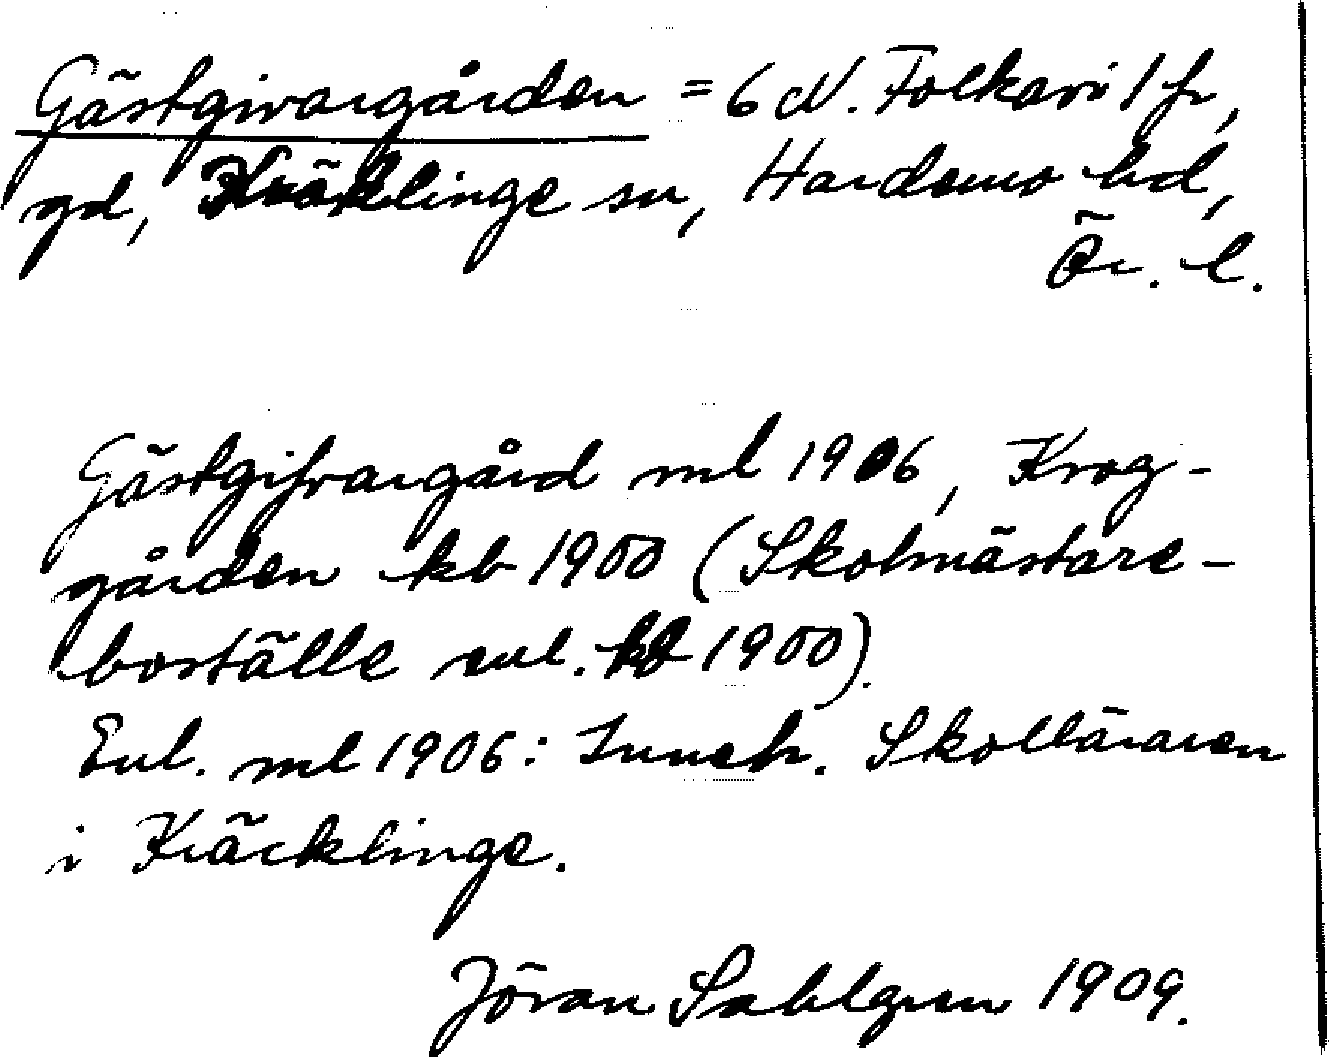 Gästgivargården = 6 N. Folkavi 1 fr,
gd, Kräklinge sn, Hardemo hd,
Ör. l.
Gästgifvargård ml 1906, Krog-
gården kb 1900 (Skolmästare-
boställe enl. kb 1900).
Enl. ml 1906: Inneh. Skolläraren
i Kräcklinge.
Jöran Sahlgren 1909.